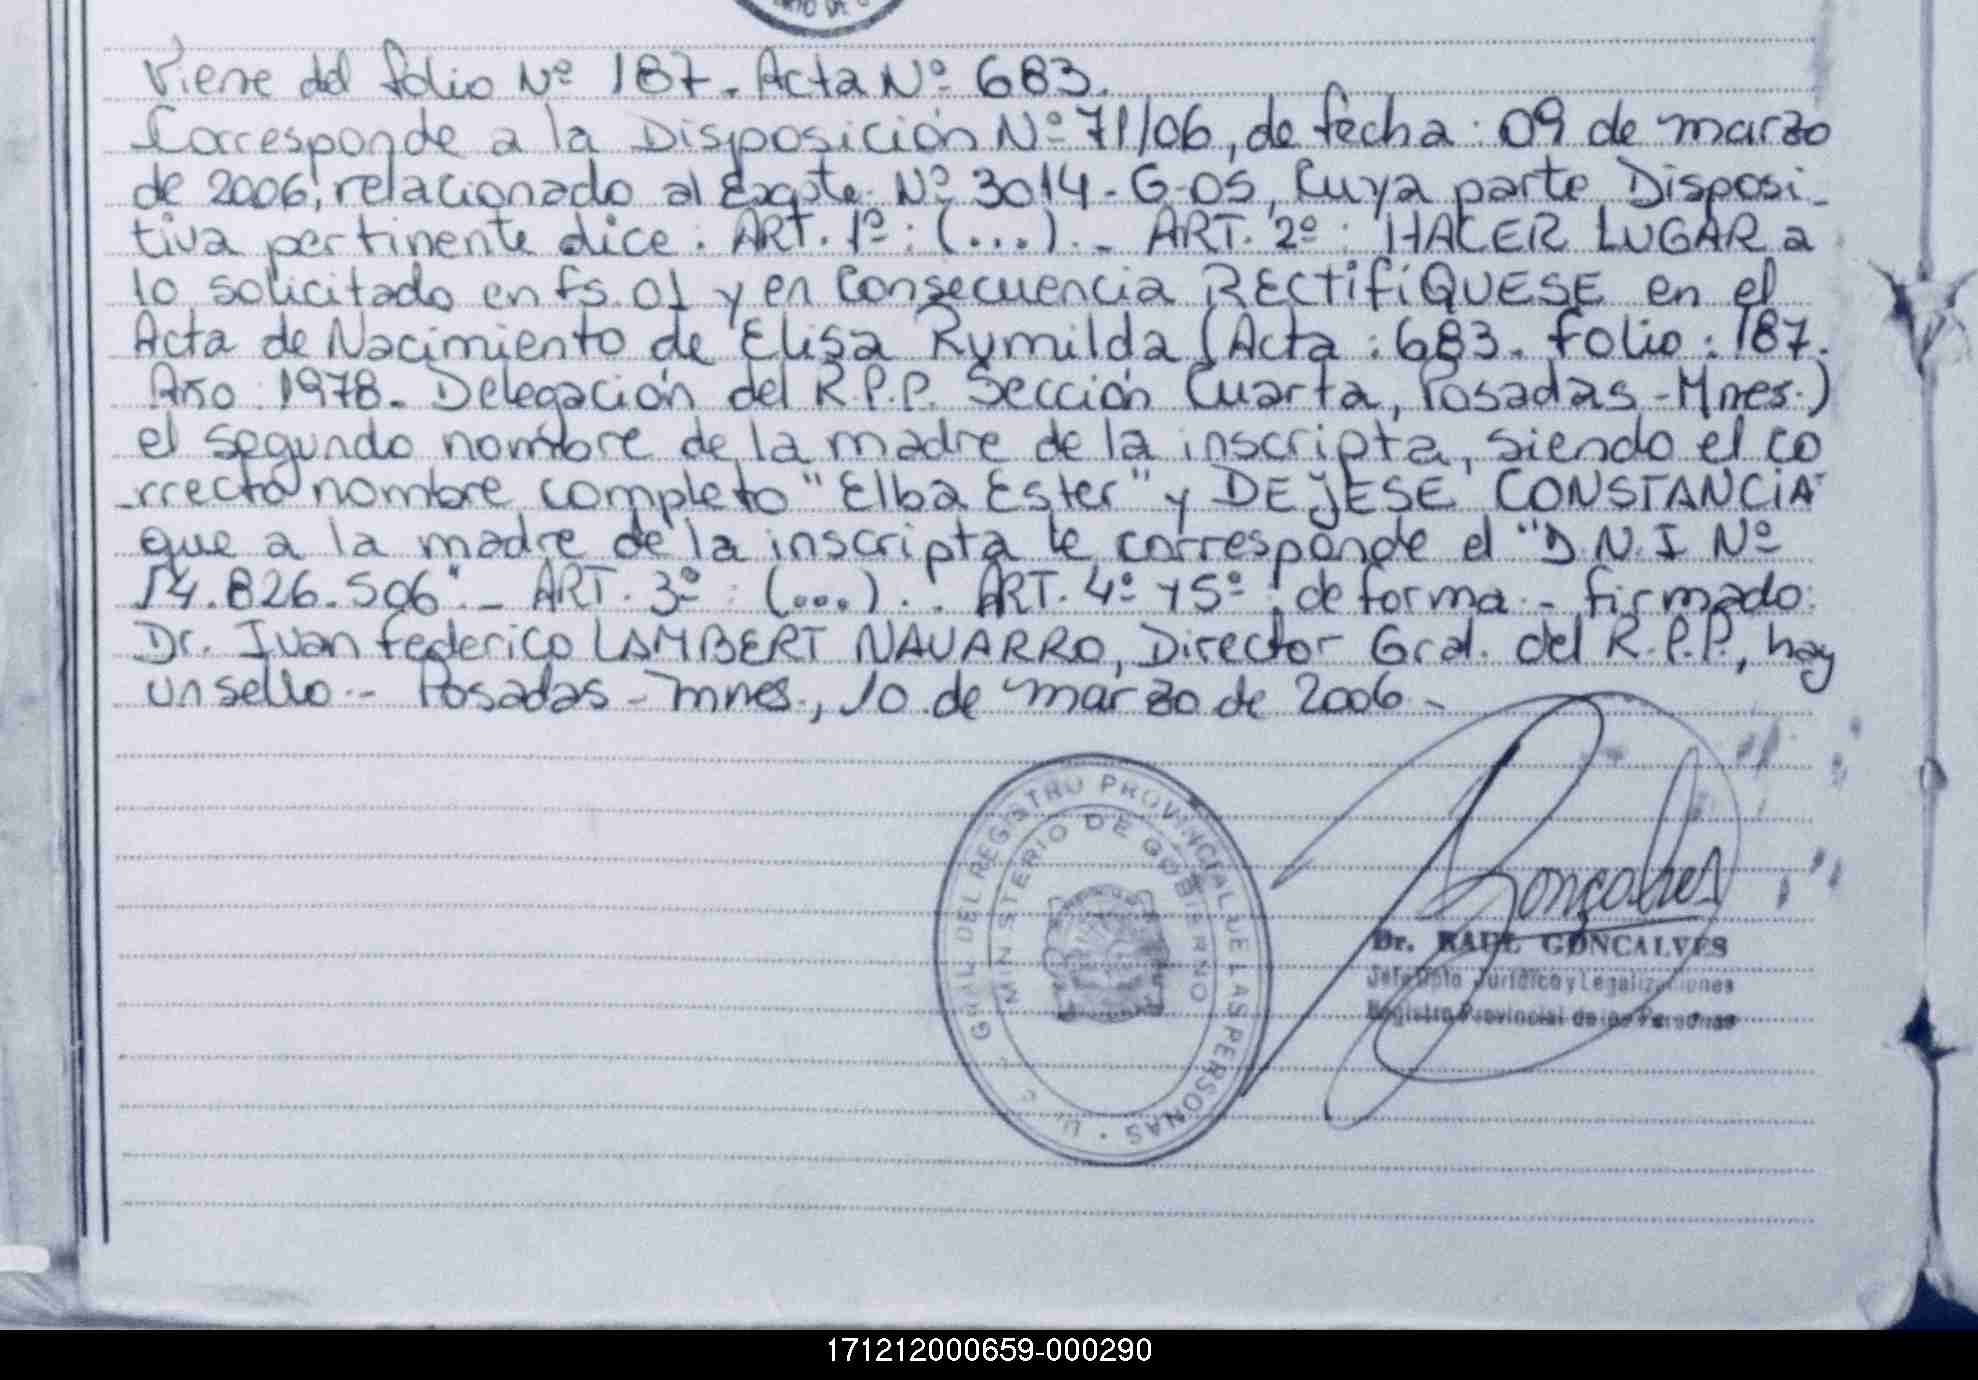 Viene del folio Nº 187. Acta Nº 683.
Corresponde a la Disposición Nº 71/06, de fecha: 09 de marzo
de 2006, relacionado al Expte. Nº 3014-G-05, Cuya parte Disposi_
tiva pertinente dice: ART. 1º: (...)._ ART. 2º: HACER LUGAR a
lo solicitado en fs. 01 y en Consecuencia RECTIFÍQUESE en el
Acta de Nacimiento de Elisa Rumilda (Acta: 683. Folio: 187.
Año: 1978. Delegación del R.P.P. Sección Cuarta, Posadas-Mnes.)
el segundo nombre de la madre de la inscripta, siendo el co
_rrecto nombre completo "Elba Ester" y DEJESE CONSTANCIA
que a la madre de la inscripta le corresponde el "D.N.I Nº
14.826.506"._ ART. 3º: (...).. ART. 4º y 5º: de forma._ firmado:
Dr. Ivan Federico LAMBERT NAVARRO, Director Gral. del R.P.P., hay
un sello.- Posadas-Mnes., 10 de marzo de 2006.-
GRAL DEL REGISTRO PROVINCIAL DE LAS PERSONAS
MINISTERIO DE GOBIERNO
Goncalves
Dr. RAUL GONCALVES
Jefe Dpto Jurídico y Legalizaciones
Registro Provincial de las Personas
171212000659-000290